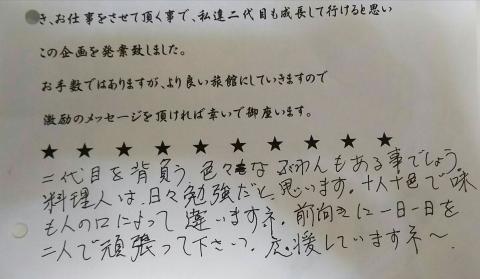 き、お仕事をさせて頂く事で、私達二代目も成長して行けると思い
この企画を発案致しました。
お手数ではありますが、より良い旅館にしていきますので
激励のメッセージを頂ければ幸いで御座います。
★ ★ ★ ★ ★ ★ ★ ★ ★ ★
二代目を背負う、色々な ふわんもある事でしょう。
料理人は、日々勉強だと思います。十人十色で味
も人の口によって違いますネ。前向きに一日一日を
二人で頑張って下さい。応援していますネ〜。